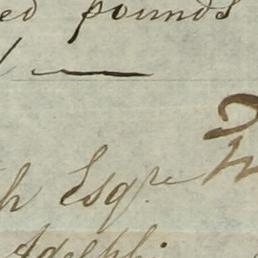 ed pounds
h Esqre
Adelphi